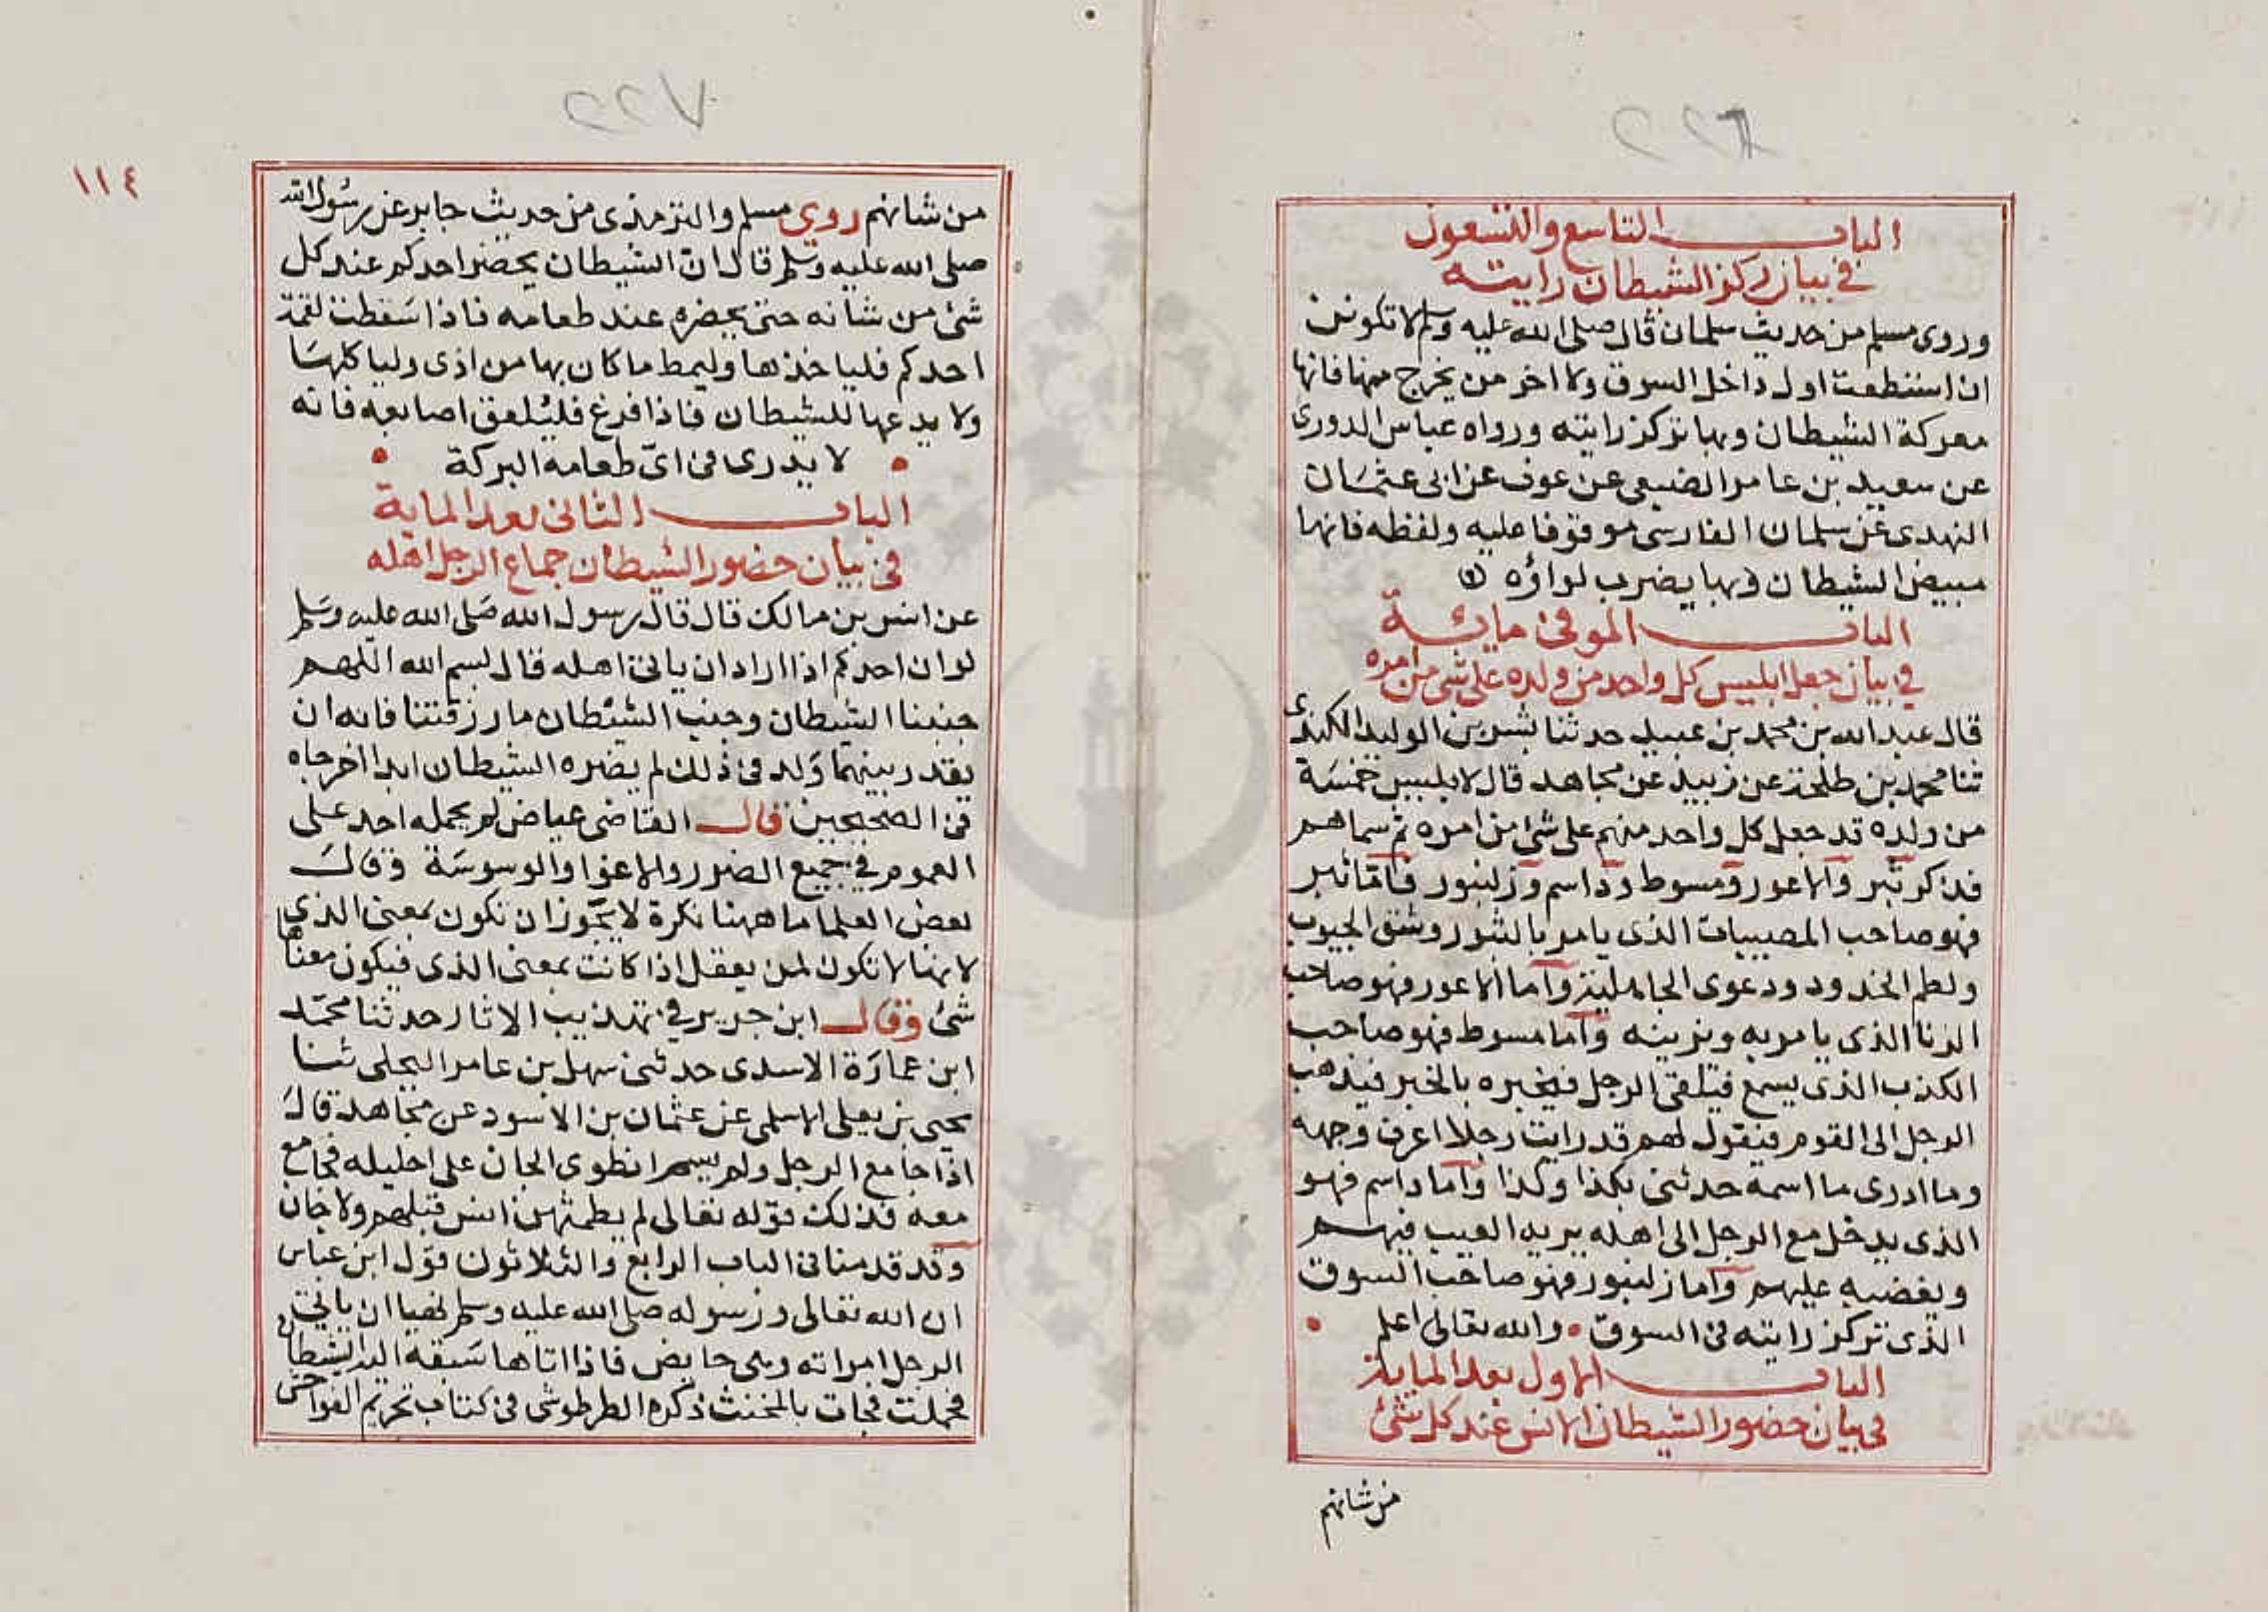 الباب التاسع والتسعون
في بيان ركز الشيطان رايته
وروى مسلم من حديث سلمان قال صلى الله عليه وسلم لا تكونن
ان استطعت اول داخل السوق ولا اخر من يخرج منها فانها
معركة الشيطان وبها تركز رايته ورواه عباس الدورى
عن سعيد بن عامر الضبعى عن عوف عن ابى عثمان
النهدى عن سلمان الفارسى موقوفا عليه ولفظه فانها
مبيض الشيطان وبها يضرب لواؤه
الباب الموفى مائة
في بيان جعل ابليس كل واحد من ولده على شئ من امره
قال عبد الله بن محمد بن عبيد حدثنا بشر بن الوليد الكندى
ثنا محمد بن طلحة عن زبيد عن مجاهد قال لابليس خمسة
من ولده قد جعل كل واحد منهم على شئ من امره ثم سماهم
فذكر ثبر والاعور ومسوط وداسم وزلنبور فاما ثبر
فهو صاحب المصيبات الذى يامر بالثبور وشق الجيوب
ولطم الخدود ودعوى الجاهلية واما الاعور فهو صاحب
الزنا الذى يامر به ويزينه واما مسوط فهو صاحب
الكذب الذى يسمع فيتلقى الرجل فيخبره بالخبر فيذهب
الرجل الى القوم فيقول لهم قد رايت رجلا اعرف وجهه
وما ادرى ما اسمه حدثنى بكذا وكذا واما داسم فهو
الذى يدخل مع الرجل الى اهله يريه العيب فيهم
ويغضبه عليهم واما زلنبور فهو صاحب السوق
الذى تركز رايته فى السوق والله تعالى اعلم
الباب الاول بعد الماية
فى بيان حضور الشيطان الانس عند كل شئ
من شانهم
١١٤
من شانهم روى مسلم والترمذى من حديث جابر عن رسول الله
صلى الله عليه وسلم قال ان الشيطان يحضر احدكم عند كل
شئ من شانه حتى يحضره عند طعامه فاذا سقطت لقمة
احدكم فلياخذها وليمط ما كان بها من اذى ولياكلها
ولا يدعها للشيطان فاذا فرغ فليلعق اصابعه فانه
لا يدرى فى اى طعامه البركة
الباب الثانى بعد الماية
فى بيان حضور الشيطان جماع الرجل اهله
عن انس بن مالك قال قال رسول الله صلى الله عليه وسلم
لو ان احدكم اذا اراد ان ياتى اهله قال بسم الله اللهم
جنبنا الشيطان وجنب الشيطان ما رزقتنا فانه ان
يقدر بينهما ولد فى ذلك لم يضره الشيطان ابدا اخرجاه
فى الصحيحين قال القاضى عياض لم يحمله احد على
العموم في جميع الضرر والاغوا والوسوسة وقال
بعض العلما ما ههنا نكرة لا يجوز ان تكون بمعنى الذى
لانها لا تكون لمن يعقل اذا كانت بمعنى الذى فيكون معناها
شئ وقال ابن جرير في تهذيب الاثار حدثنا محمد
ابن عمارة الاسدى حدثنى سهل بن عامر البجلى ثنا
يحيى بن يعلى الاسلمى عن عثمان بن الاسود عن مجاهد قال
اذا جامع الرجل ولم يسم انطوى الجان على احليله فجامع
معه فذلك قوله تعالى لم يطمثهن انس قبلهم ولا جان
وقد قدمنا فى الباب الرابع والثلاثون قول ابن عباس
ان الله تعالى ورسوله صلى الله عليه وسلم نهيا ان ياتى
الرجل امراته وهى حايض فاذا اتاها سبقه اليها الشيطان
فحملت فجات بالمخنث ذكره الطرطوشى فى كتاب تحريم الفواحش